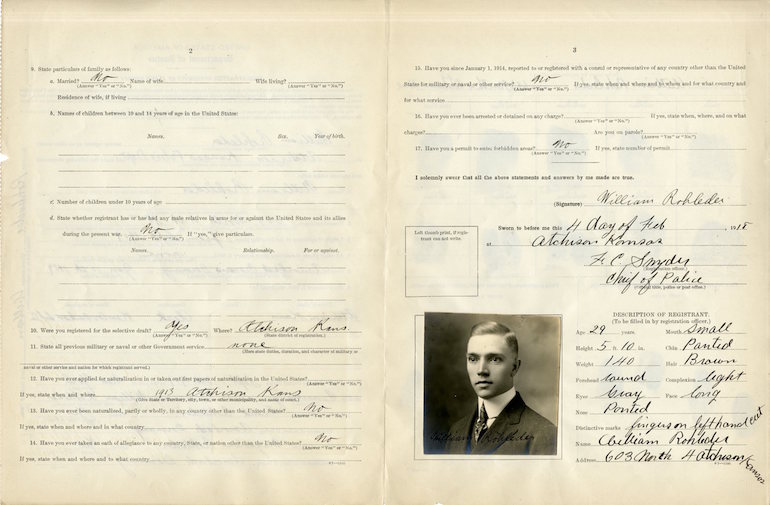 2
9. State particulars of family as follows:
a. Married? No Name of wife Wife living?
(Answer "Yes" or "No.") (Answer "Yes" or "No.")
Residence of wife, if living
b. Names of children between 10 and 14 years of age in the United States:
Names. Sex. Year of birth.
c. Number of children under 10 years of age
d. State whether registrant has or has had any male relatives in arms for or against the United States and its allies
during the present war. No If "yes," give particulars.
(Answer "Yes" or "No.")
Names. Relationship. For or against.
10. Were you registered for the selective draft? Yes Where? Atchison Kans.
(Answer "Yes" or "No.") (State district of registration.)
11. State all previous military or naval or other Government service none
(State dates, duration, and character of military or
naval or other service and nation for which registrant served.)
12. Have you ever applied for naturalization in or taken out first papers of naturalization in the United States?
(Answer "Yes" or "No.")
If yes, state when and where 1913 Atchison Kans
(Give State or Territory, city, town, or other municipality, and name of court.)
13. Have you ever been naturalized, partly or wholly, in any country other than the United States? No
(Answer "Yes" or "No.")
If yes, state when and where and in what country
14. Have you ever taken an oath of allegiance to any country, State, or nation other than the United States? No
(Answer "Yes" or "No.")
If yes, state when and where and to what country
3
15. Have you since January 1, 1914, reported to or registered with a consul or representative of any country other than the United
States for military or naval or other service? No If yes, state when and where and to whom and for what country and
(Answer "Yes" or "No.")
for what service
16. Have you ever been arrested or detained on any charge? If yes, state when, where, and on what
(Answer "Yes" or "No.")
charges? Are you on parole?
(Answer "Yes" or "No.")
17. Have you a permit to enter forbidden areas? No If yes, state number of permit
(Answer "Yes" or "No.")
I solemnly swear that all the above statements and answers by me made are true.
(Signature) William Rohleder
Left thumb print, if regis-
trant can not write.
Sworn to before me this 4 day of Feb 1918
at Atchison Kansas
F. C. Snyder
(Registration officer.)
Chief of Police
(Official title, police or post office.)
William Rohleder
DESCRIPTION OF REGISTRANT.
(To be filled in by registration officer.)
Age 29 years. Mouth Small
Height 5-10 in. Chin Ponted
Weight 140 Hair Brown
Forehead round Complexion light
Eyes Gray Face long
Nose Ponted
Distinctive marks fingers on left hand cut
Name William Rohleder
Address 603 North 4 Atchison Kansas